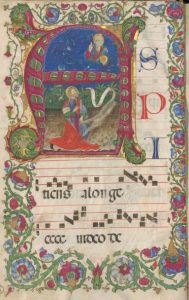 AS
P
I
ciens alonge
ecce video de